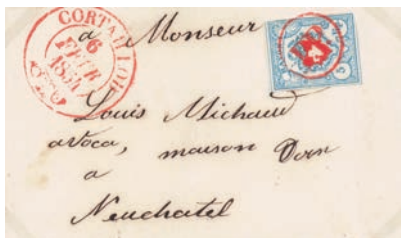 CORTAILLOD
6
FEVR
1851
a Monseur
Louis Michaud
avoca, maison Dorn
a
Neuchatel
5